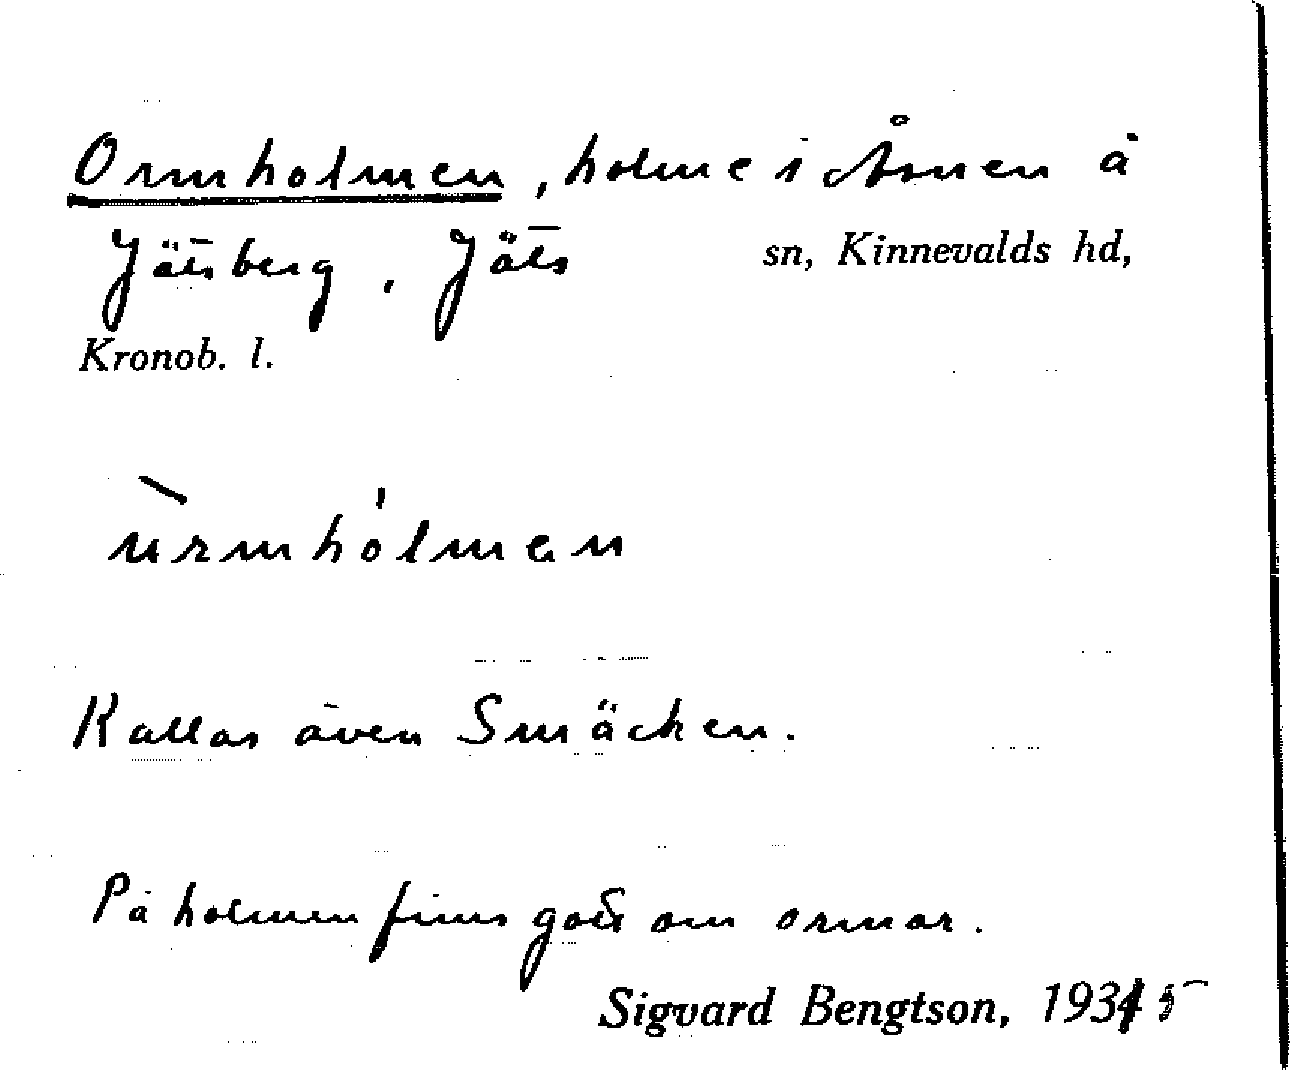 Ormholmen, holme i Åsnen å
Jätsberg, Jäts sn, Kinnevalds hd,
Kronob. l.
ùrmhólmen
Kallas även Smäcken.
På holmen finns gott om ormar.
Sigvard Bengtson, 1935